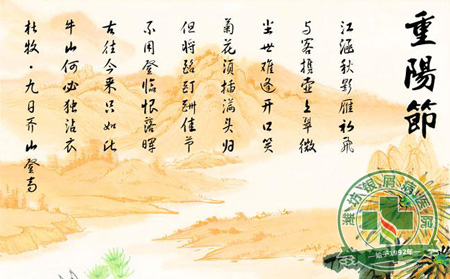 重陽節
江涵秋影雁初飛
与客携壶上翠微
尘世难逢开口笑
菊花须插满头归
但将酩酊酬佳节
不用登临恨落晖
古往今来只如此
牛山何必独沾衣
杜牧·九日齐山登高
潍坊银屑病医院
始于1992年